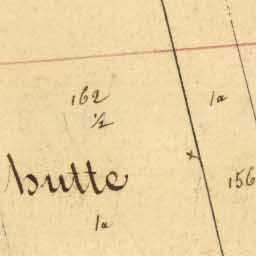 162
½
1a
hutte
156
1a